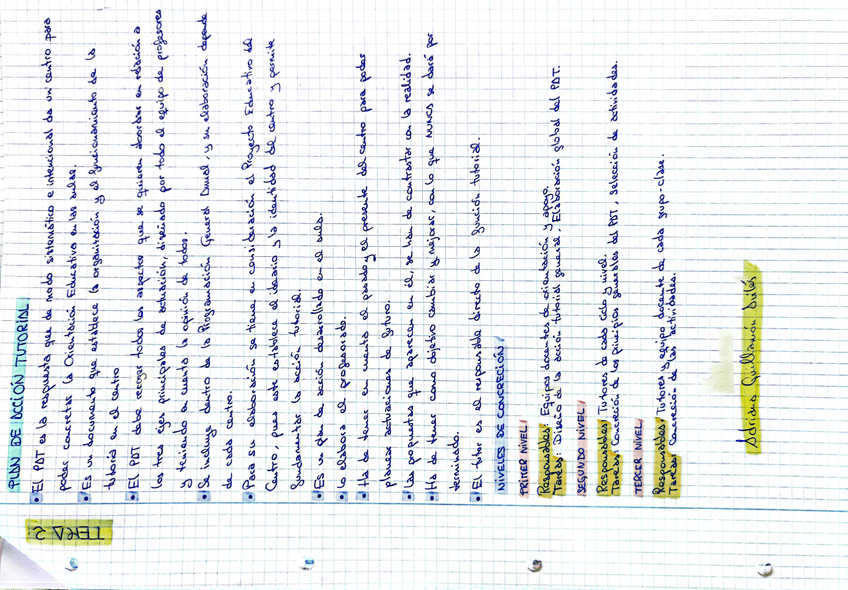 TEMA 5:
PLAN DE ACCIÓN TUTORIAL
• El PAT es la respuesta que de modo sistemático e intencional da un centro para
poder concretar la Orientación Educativa en las aulas.
• Es un documento que establece la organización y el funcionamiento de la
tutoría en el centro
• El PAT debe recoger todos los aspectos que se quieren abordar en relación a
los tres ejes principales de actuación, diseñado por todo el equipo de profesores
y teniendo en cuenta la opinión de todos.
• Se incluye dentro de la Programación General Anual, y su elaboración depende
de cada centro.
• Para su elaboración se tiene en consideración el Proyecto Educativo del
Centro, pues este establece el ideario y la identidad del centro y permite
fundamentar la acción tutorial.
• Es un plan de acción desarrollado en el aula.
• Lo elabora el profesorado.
• Ha de tener en cuenta el pasado y el presente del centro para poder
planear actuaciones de futuro.
• Las propuestas que aparecen en él, se han de contrastar con la realidad.
• Ha de tener como objetivo cambiar y mejorar, con lo que NUNCA se dará por
terminado.
• El tutor es el responsable directo de la función tutorial.
NIVELES DE CONCRECIÓN:
PRIMER NIVEL:
Responsables: Equipos docentes de orientación y apoyo.
Tareas: Diseño de la acción tutorial general. Elaboración global del PAT.
SEGUNDO NIVEL:
Responsables: Tutores de cada ciclo y nivel.
Tareas: Concreción de los principios generales del PAT, selección de actividades.
TERCER NIVEL:
Responsables: Tutores y equipo docente de cada grupo-clase.
Tareas: Concreción de las actividades.
Adriana Guillamón